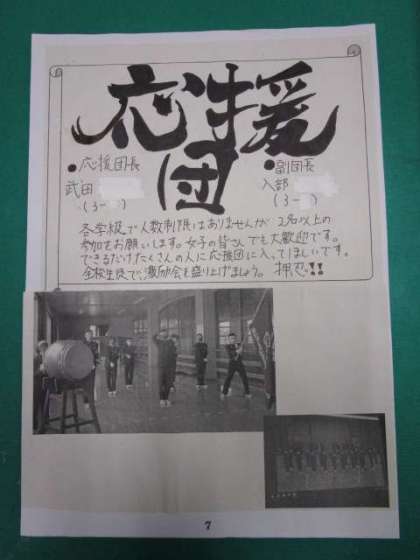 応援団
●応援団長
武田
(3-
●副団長
入部
(3-
各学級で人数制限はありませんが、2名以上の
参加をお願いします。女子の皆さんでも大歓迎です。
できるだけたくさんの人に応援団に入ってほしいです。
全校生徒で、激励会を盛り上げましょう。 押忍!!
7